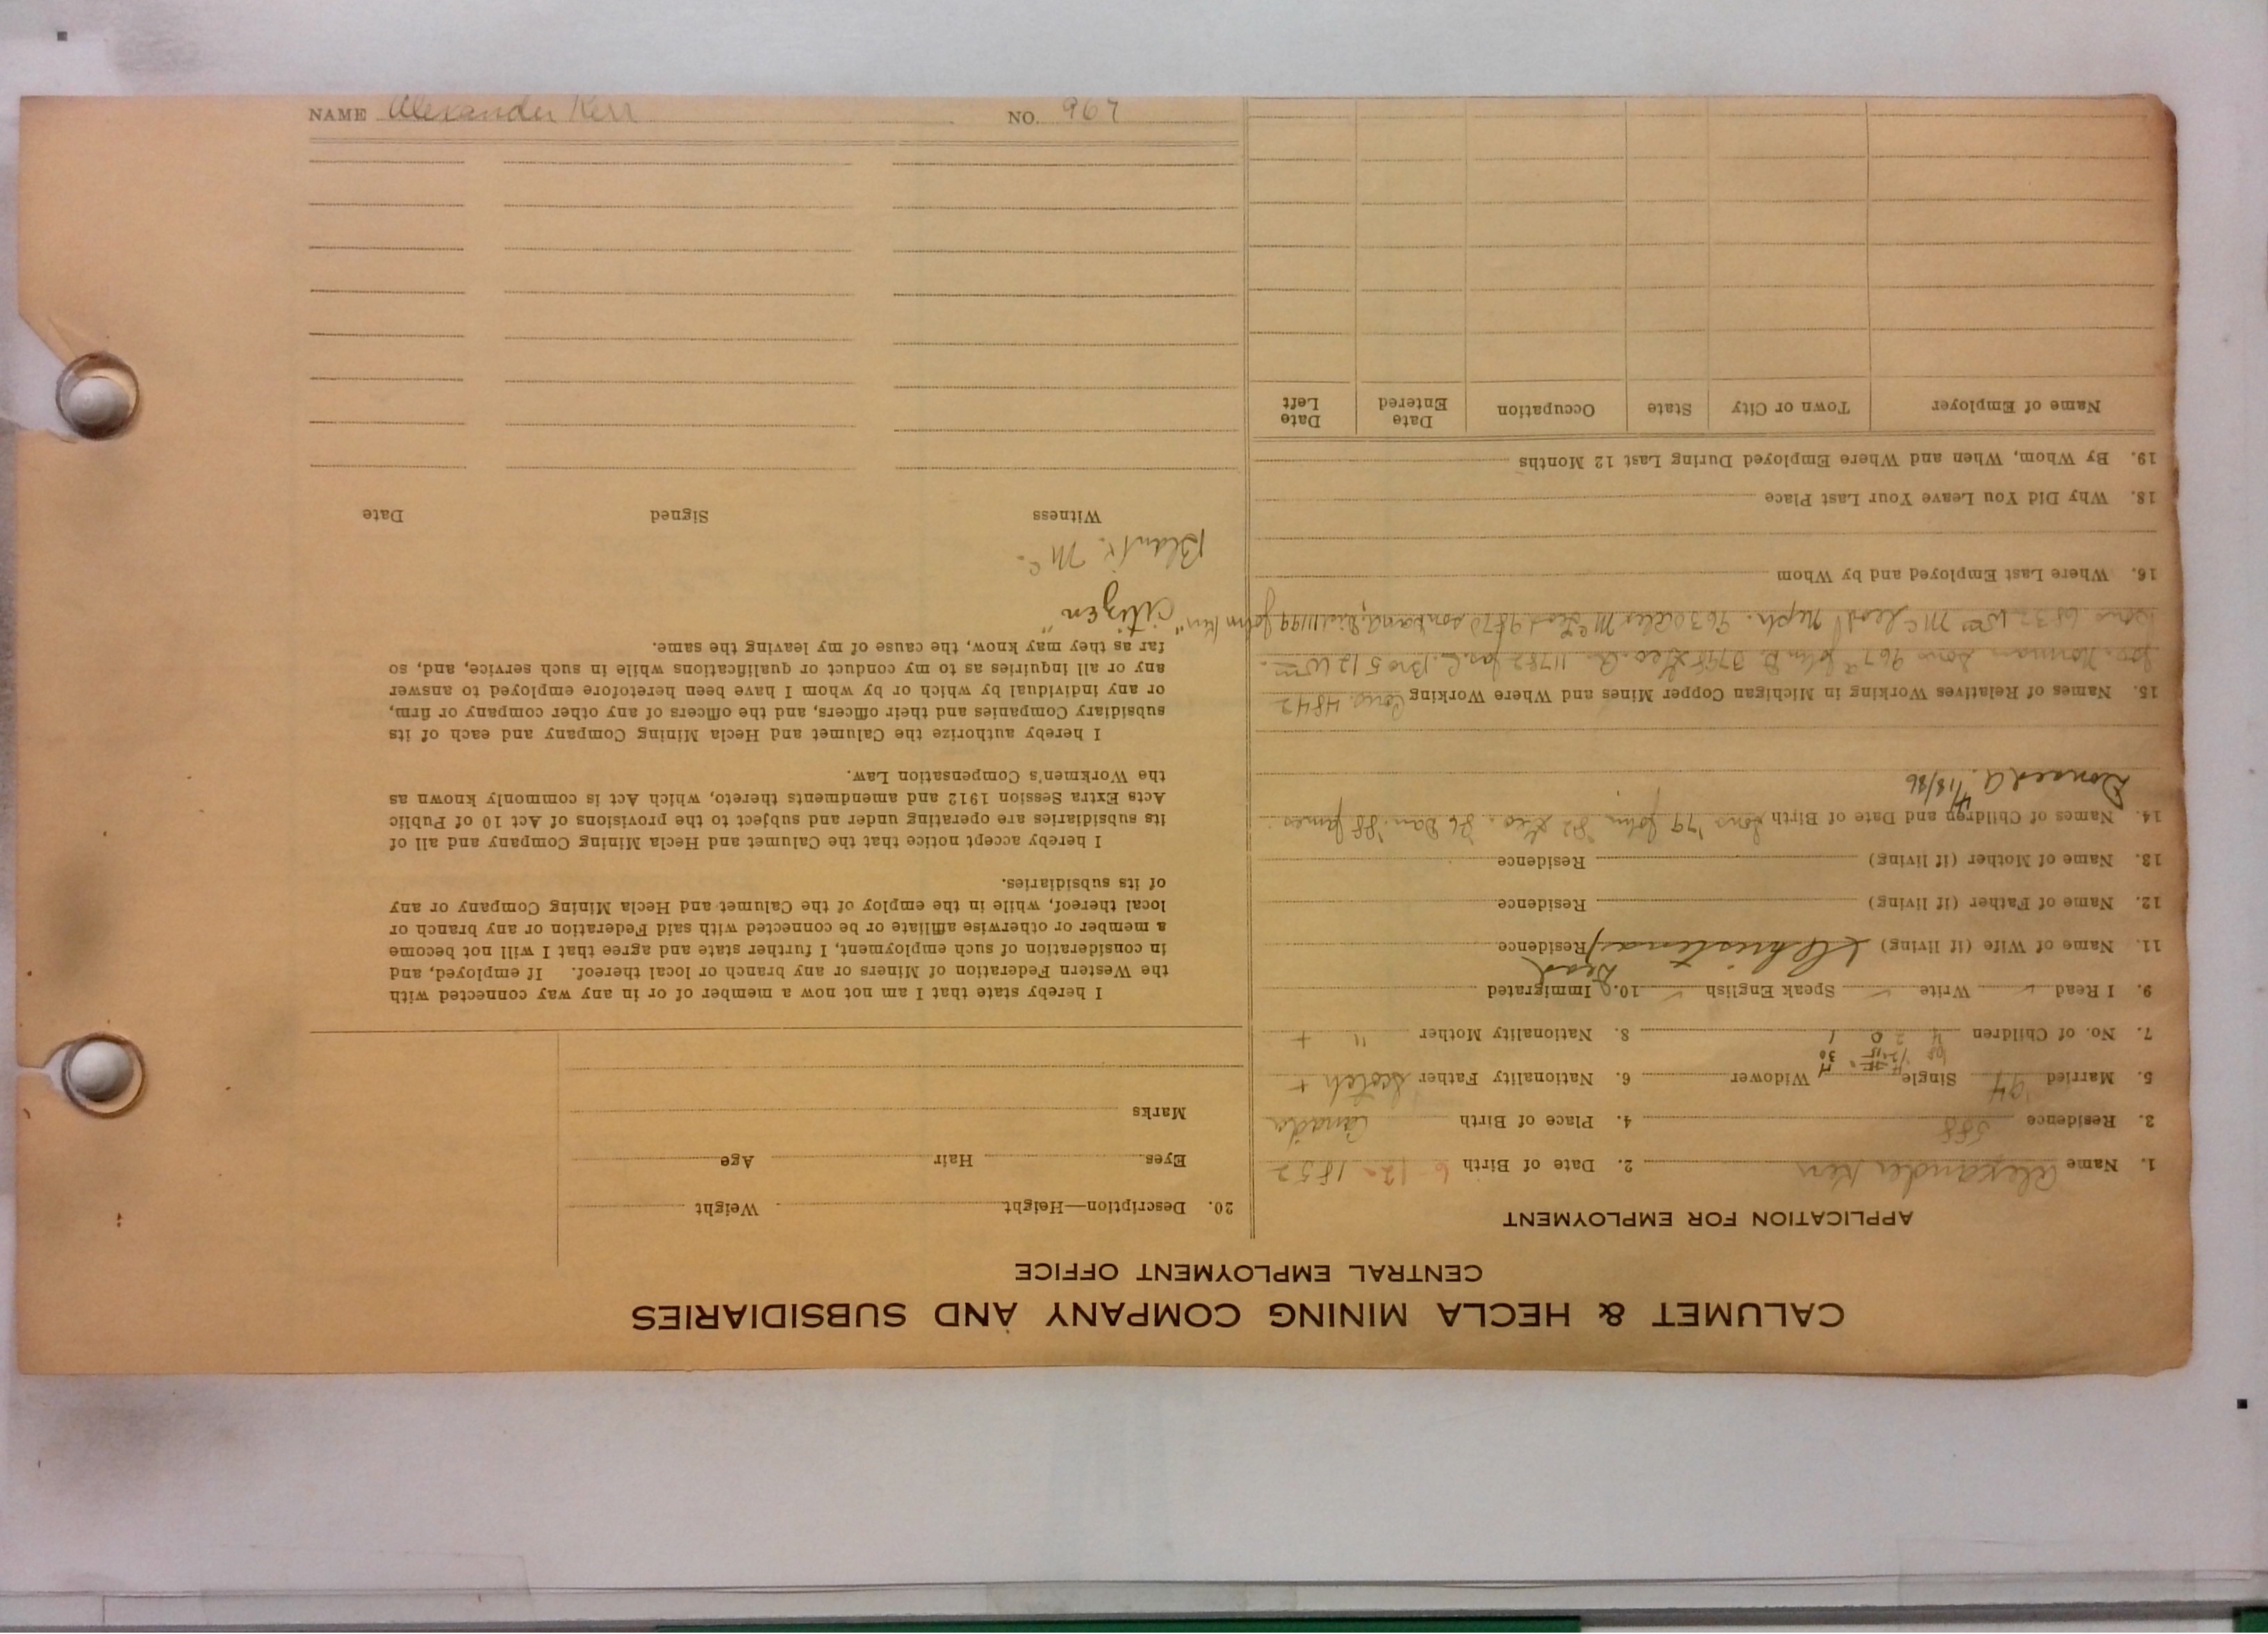 CALUMET & HECLA MINING COMPANY AND SUBSIDIARIES
CENTRAL EMPLOYMENT OFFICE
APPLICATION FOR EMPLOYMENT
1. Name Alexander Kerr 2. Date of Birth 6-12-1852
3. Residence 588 4. Place of Birth Canada
5. Married '94 Single Widower 6. Nationality Father Scotch +
7. No. of Children 4 2 0 1 8. Nationality Mother " +
9. I Read ✓ Write ✓ Speak English ✓ 10. Immigrated
Dead
11. Name of Wife (if living) (Christena) Residence
12. Name of Father (if living) Residence
13. Name of Mother (if living) Residence
14. Names of Children and Date of Birth Sons '79 John '82 Geo. '86 Dan. '88 James
Donald A. 4/18/86
15. Names of Relatives Working in Michigan Copper Mines and Where Working 4842
Norman Sons 967 John D. 3798 Geo. A. 11782 Jas. C. Bro 512 Wm
6832 Wm McLeod Neph. 9630 Alex McLeod 9870 11199 John Kerr
16. Where Last Employed and by Whom
18. Why Did You Leave Your Last Place
19. By Whom, When and Where Employed During Last 12 Months
Name of Employer Town or City State Occupation Date Entered Date Left
20. Description—Height Weight
Eyes Hair Age
Marks
I hereby state that I am not now a member of or in any way connected with
the Western Federation of Miners or any branch or local thereof. If employed, and
in consideration of such employment, I further state and agree that I will not become
a member or otherwise affiliate or be connected with said Federation or any branch or
local thereof, while in the employ of the Calumet and Hecla Mining Company or any
of its subsidiaries.
I hereby accept notice that the Calumet and Hecla Mining Company and all of
its subsidiaries are operating under and subject to the provisions of Act 10 of Public
Acts Extra Session 1912 and amendments thereto, which Act is commonly known as
the Workmen's Compensation Law.
I hereby authorize the Calumet and Hecla Mining Company and each of its
subsidiary Companies and their officers, and the officers of any other company or firm,
or any individual by which or by whom I have been heretofore employed to answer
any or all inquiries as to my conduct or qualifications while in such service, and, so
far as they may know, the cause of my leaving the same.
"Citizen"
Witness Signed Date
NAME Alexander Kerr NO. 967